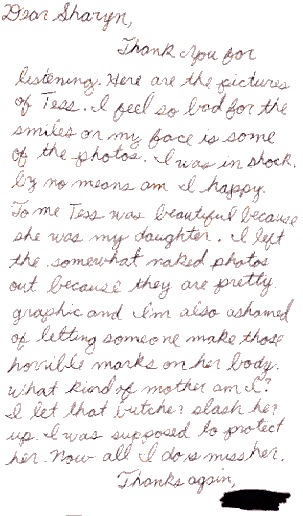 Dear Sharyn,
Thank you for
listening. Here are the pictures
of Tess. I feel so bad for the
smiles on my face is some
of the photos. I was in shock.
by no means am I happy.
To me Tess was beautiful because
she was my daughter. I left
the somewhat naked photos
out because they are pretty
graphic and I'm also ashamed
of letting someone make those
horrible marks on her body.
What kind of mother am I?
I let that butcher slash her
up. I was supposed to protect
her. Now all I do is miss her.
Thanks again,